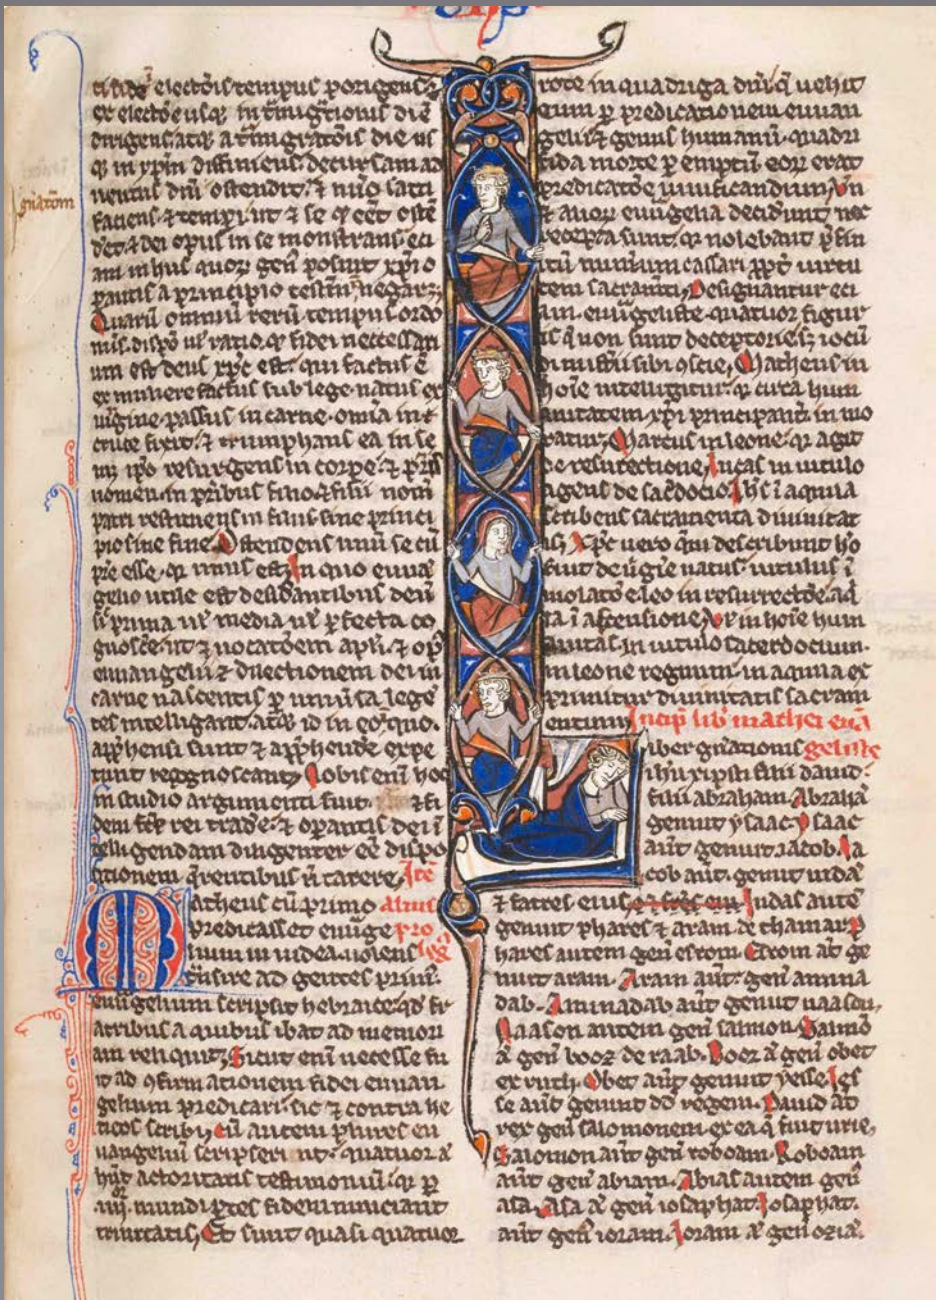 electōis tempus porigens ⁊
ex electo eusq; in tͣnsmigͣtionis diē
dirigens atq; a tͣnsmigͣtōis die usq;
in xp̄m diffiniens decursam ad
uentus dn̄i ostendit ⁊ nūo satis
faciens ⁊ tempi ut ⁊ se qͥ eēt ostē
det ⁊ dei opus in se monstrans eci
am in hiis quoꝝ gen̄ posuit xp̄io
pantis a principio testim̄ negaꝝ
gn̄atōm
Quaꝝ omniū rerū tempus ordo
nus dispō ul̓ ratio. qͥ fidei neccessari
um est deus xp̄c est. qui factus ē
ex muliere factus sub lege. natus ex
uirgine. passus in carne. omīa in
cruce fixit. ⁊ triumphans ea in se
met ip̄o resurgens in corpe. ⁊ pͣris
nomen in pͣtribus filio. ⁊ filii nom̄
patri restituens in filiis. sine princi
pio sine fine. Ostendens unū se cū
pͣre esse. qͥ unus est. In quo euua̅
gelio utile est desid̓antibus deū
sic prima ul̓ media ul̓ pfecta co
gnosc̓e. ut ⁊ uocatōem apl̄i. ⁊ op̄
euuangelii ⁊ dilectionem dei in
carne nascentis p uniu̓sa legē
tes intelligant. atq; id in eo qͦ quo.
app̓hensi sunt ⁊ app̓hende̓ expe
tunt recognoscant. Nobis enī hoc
in studio argumenti fuit. ⁊ fi
dem fc̄e rei trade̓. ⁊ opantis dei ī
telligendam diligenter eē dispo
sitionem q̓rentibus n̄ tacere. Itē
Matheus cū primo alius
predicasset euuāge pro
lium in iudea. uolens log
tͣnsire ad gentes primū.
euāgelium scripsit hebraice. qd̄ fr
atribus a quibus ibat ad memori
am reliquit. Sicut enī necesse fu
it ad ꝯfirmationem fidei euuan
gelium predicari. sic ⁊ contra he
ticos scribi. Cū autem plures eu
uangelii scripserint. quatuor aͭ
hn̄t actoritatis testimoniū. qͥ p
.iiii. mundi ptes fidem nunciant
trinitatis. Et sunt quasi quatuor
rote in quadriga dn̄i. q̄ uehit
eum p predicationem euuan
gelii. ⁊ genus humanū quadri
fida morte pemptū eoꝝ erat
predicatōe uiuificandum. Vn̄
⁊ alioꝝ euu̅gelia decid̓unt nec
recepta sunt. qͥ nolebant p̓fin
itū num̓um cassari ppt̓ uirtu
tem sacram̄ti. Designantur eci
am. euu̅geliste quatuor figur
is q̄ non sunt deceptoriē. s; iocū
di mist̓ii sibi ꝯscie. Matheus in
hoīe intelligitur. qͥ circa hum
anitatem xp̄i principalit̓ in mo
ratur. Marcus in leone. qͥ agit
de resurectione. Lucas in uitulo
agens de sac̓docio. Ioh̄s ī aquila
scribens sacramenta diuinitat
is. Xp̄c uero q̄m describunt ho
fuit de uīgie natus. uitulus ī
īmolatōe. leo in resurrectōe. aq̄
la ī ascensione. Vl̓ in hoīe hum
anitas. in uitulo sacerdocium.
in leone regnum. in aquila ex
primitur diuinitatis sacram
entum. Incip̄ lib̓ mathei euā
Liber gn̄ationis geliste
ih̄u xp̄sti filii dauid.
filii abraham. Abrahā
genuit ysaac. Ysaac
aut̄ genuit. iacob. Ia
cob aut̄. genuit iudā
⁊ fratres eius et frēs eiu Iudas autē
genuit phares ⁊ aram de thamar. P
hares autem gen̄ esrom. Esrom at̄ ge
nuit aram. Aram aut̄. gen̄ amina
dab. Aminadab aut̄ genuit naason.
Naason autem gen̄ salmon. Salmō
aͭ gen̄ booz de raab. Booz aͭ gen̄ obet
ex ruth. Obet aut̄ genuit yesse. Ies
se aut̄ genuit dd̄ regem. Dauid at̄
rex gen̄ salomonem ex ea q̄ fuit urie.
Salomon aut̄ gen̄ roboam. Roboam
aut̄ gen̄ abiam. Abias autem gen̄
asa. Asa aͭ gen̄ iosaphat. Iosaphat.
aut̄ gen̄ ioram. Ioram aͭ gen̄ oziā.